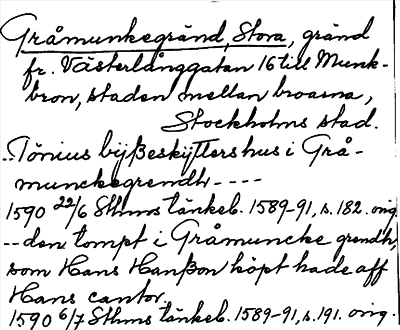 Gråmunkegränd, Stora, gränd
fr. Västerlånggatan 16 till Munk-
bron, staden mellan broarna,
Stockholms stad.
..Tönius bÿszeskÿttershus i Grå-
munckegrendh ----
1590 22/6 Sthms tänkeb. 1589-91, s. 182. orig.
--den tompt i Gråmuncke grendh,
som Hans Hanßon köpt hade aff
Hans cantor.
1590 6/7 Sthms tänkeb. 1589-91, s. 191. orig.